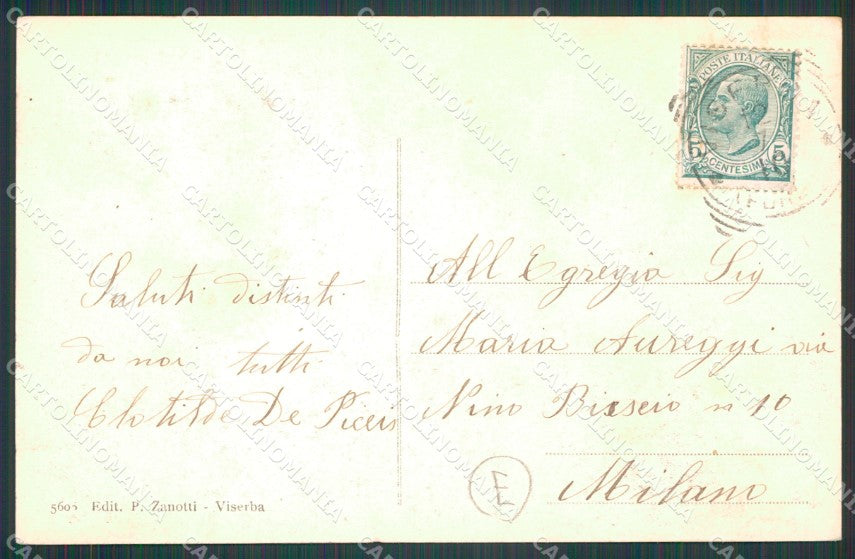 POSTE ITALIANE
5 5
CENTESIMI
Saluti distinti
da noi tutti
Clotilde De Piccis
All Egregio Sig
Maria Aureggi via
Nino Bixseio n 10
Milano
E
Edit. P. Zanotti - Viserba
CARTOLINOMANIA